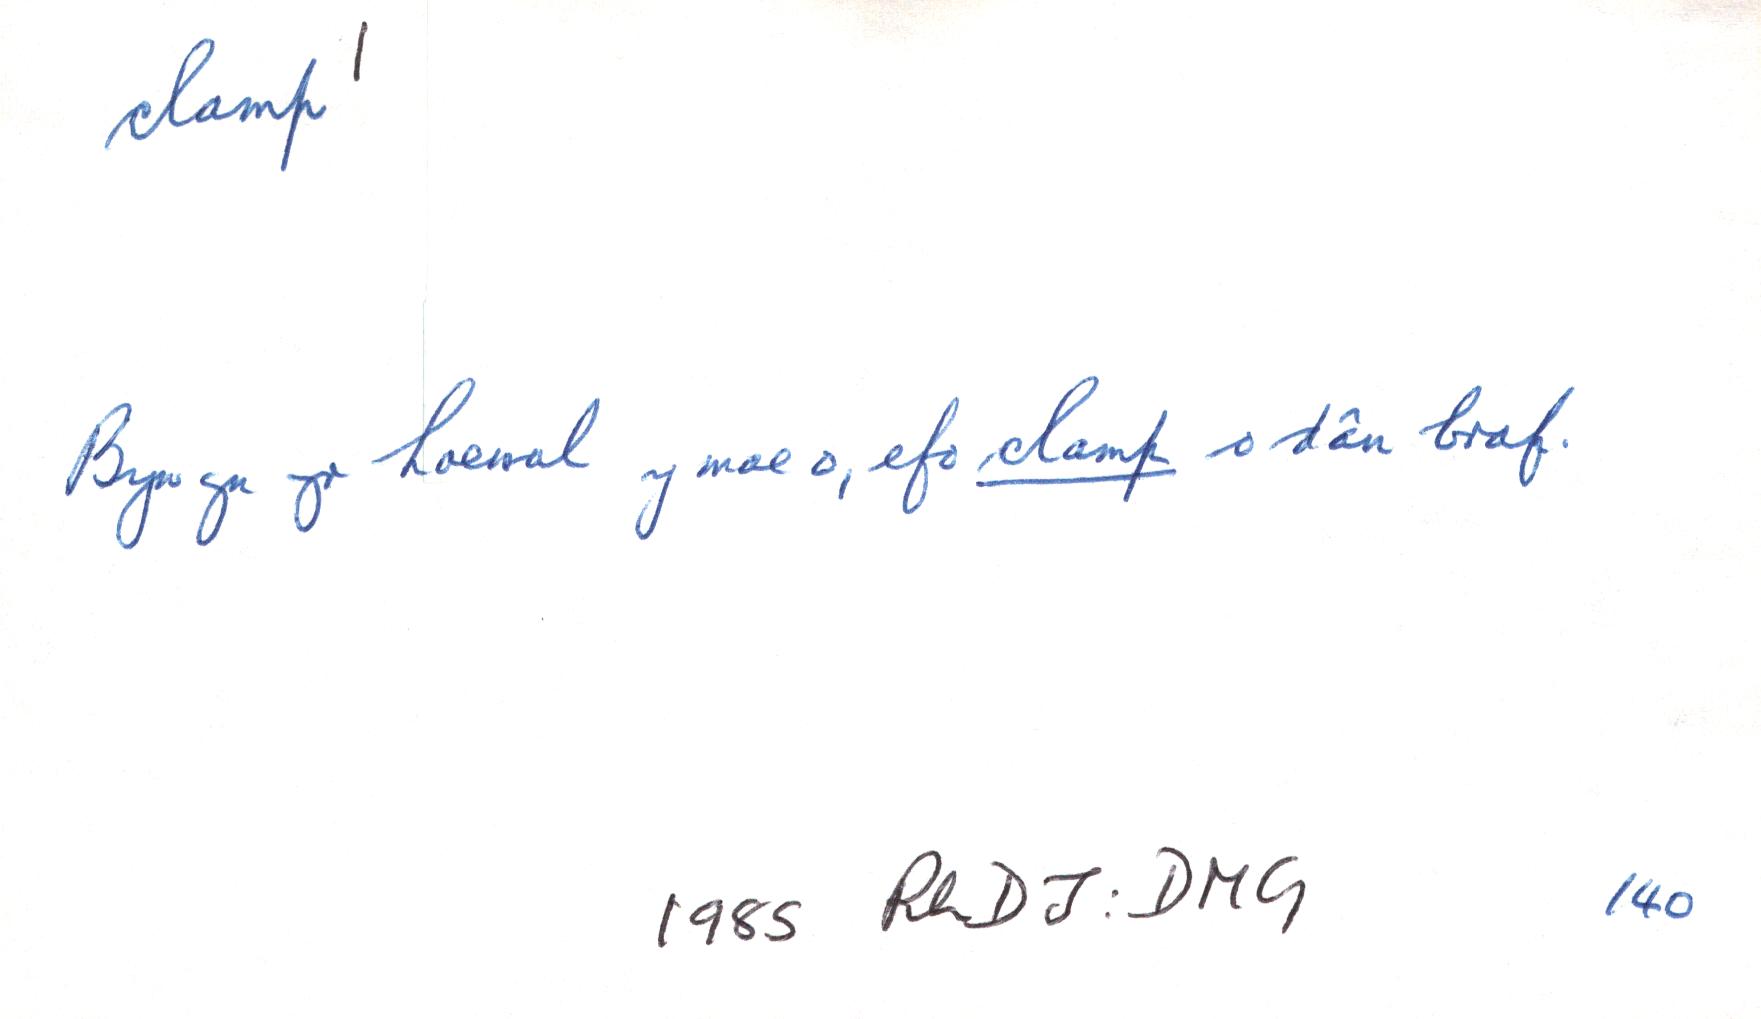 clamp¹
Byw yn yr hoewal y mae o, efo clamp o dân braf.
1985 RhDJ: DMG 140